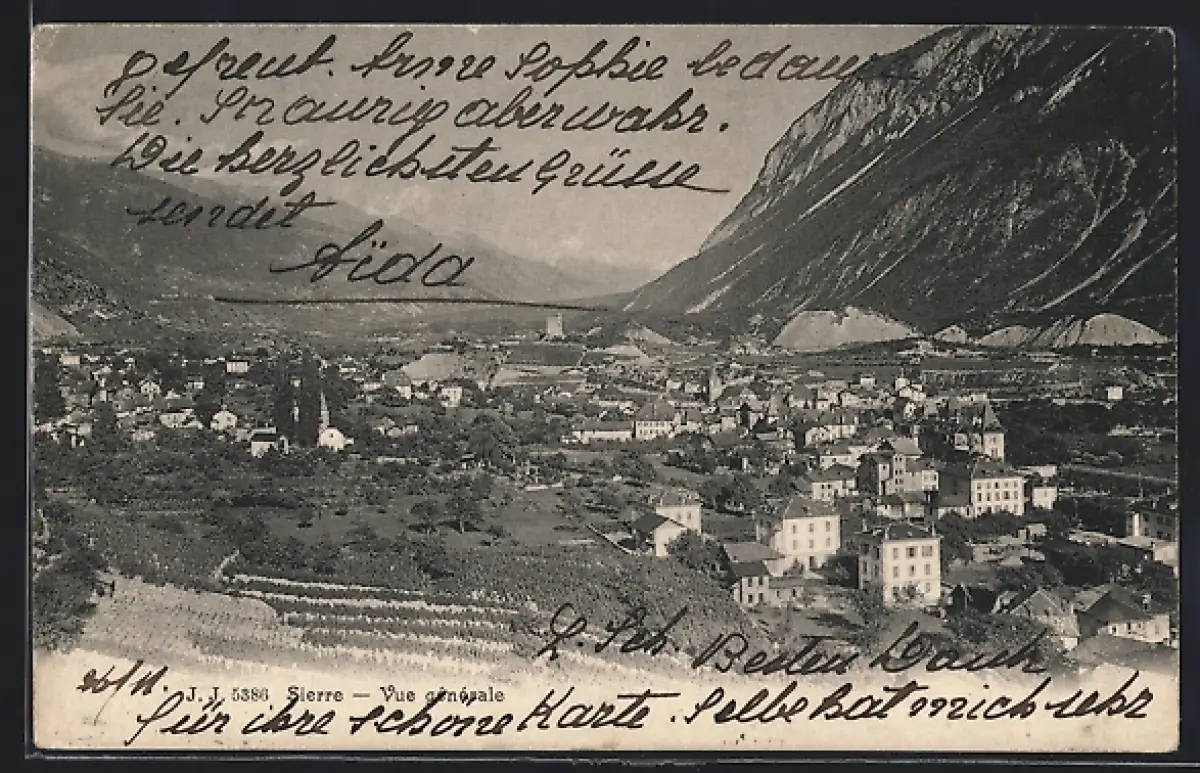 gefreut. Arme Sophie bedaure
Sie. Straurig aber wahr.
Die herzlichsten Grüsse
sendet
Aïda
L. Sch. Besten Dank
26/11.
J. J. 5386 Sierre — Vue générale
für ihre schöne Karte. Selbe hat mich sehr